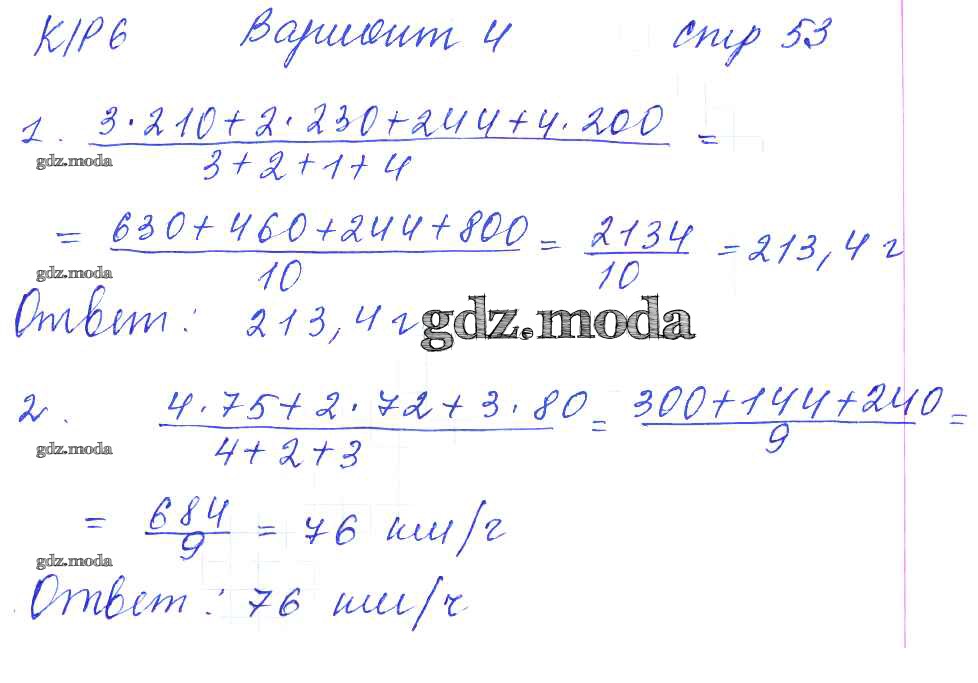 К/Р 6 Вариант 4 стр 53
1. (3·210+2·230+244+4·200)/(3+2+1+4) =
gdz.moda
= (630+460+244+800)/10 = 2134/10 = 213,4 г
gdz.moda
Ответ: 213,4 г gdz.moda
2. (4·75+2·72+3·80)/(4+2+3) = (300+144+240)/9 =
gdz.moda
= 684/9 = 76 км/ч
gdz.moda
Ответ: 76 км/ч